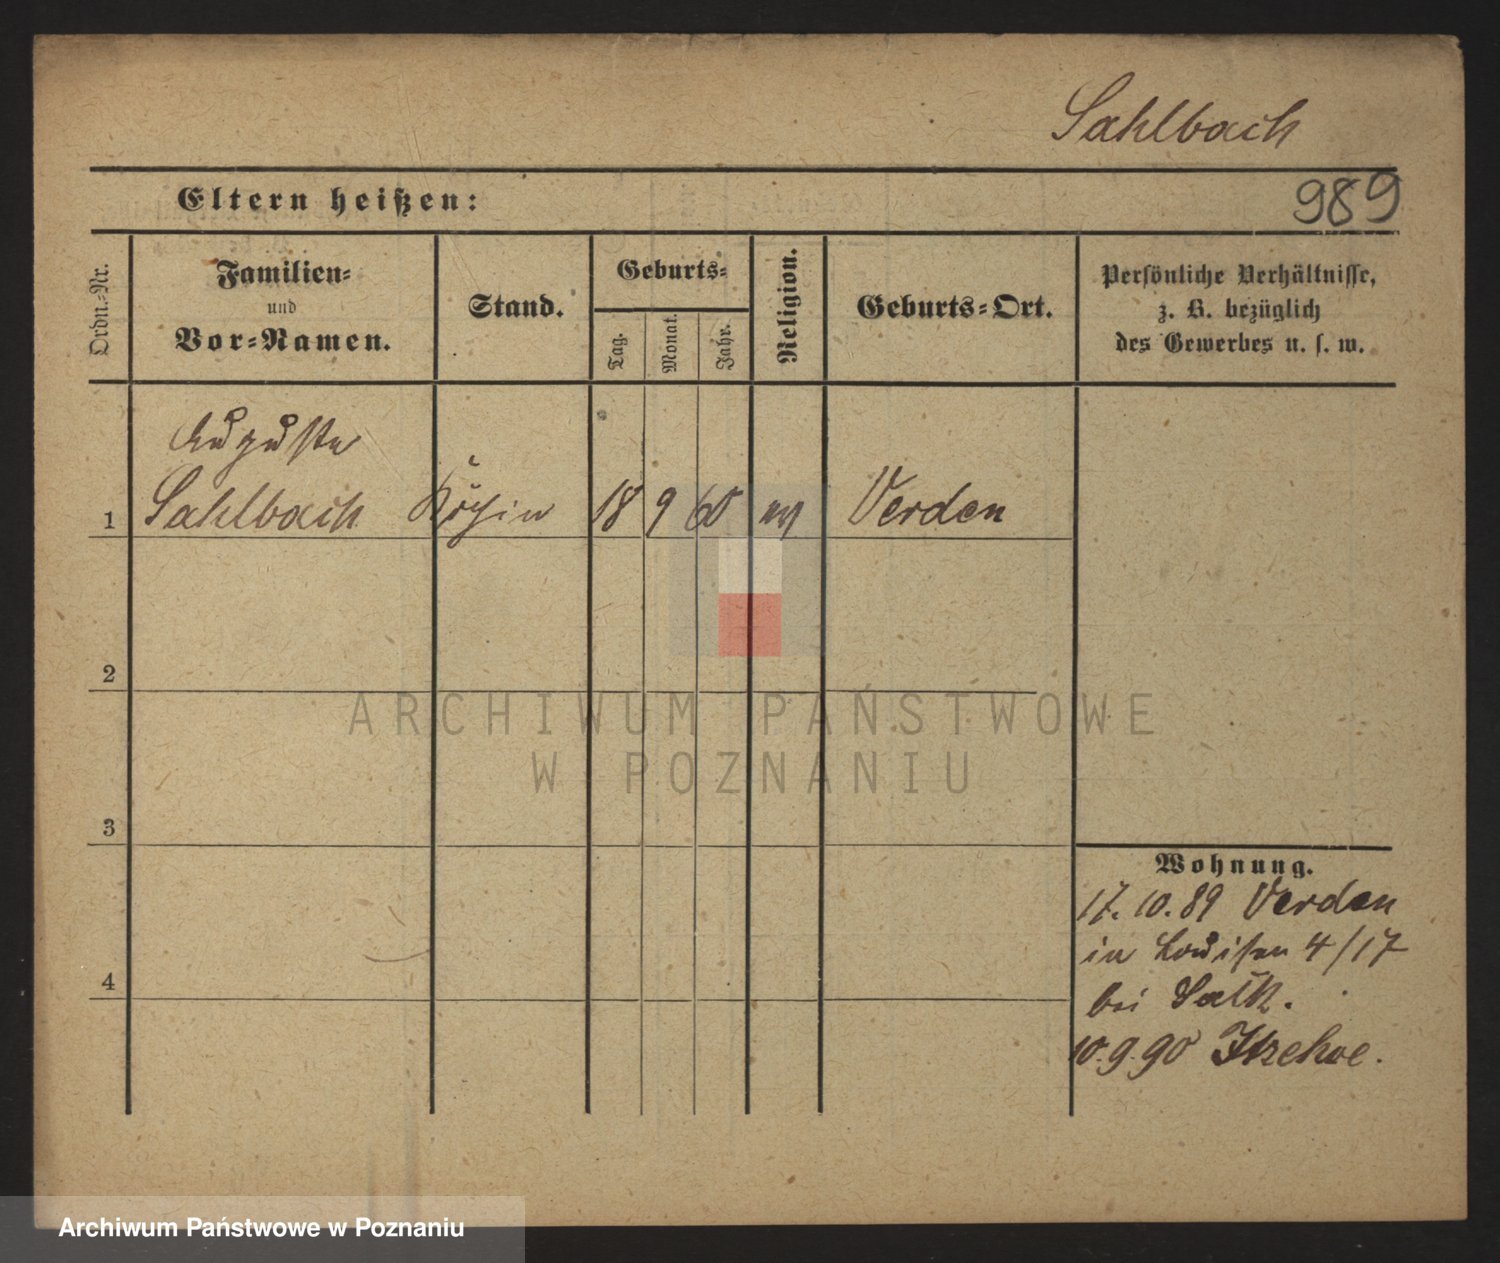 Sahlbach
Eltern heißen:
989
Ordn.-Nr.
Familien-
und
Vor-Namen.
Stand.
Geburts-
Tag.
Monat.
Jahr.
Religion.
Geburts-Ort.
Persönliche Verhältnisse,
z. B. bezüglich
des Gewerbes u. s. w.
Auguste
1 Sahlbach Köchin 18 9 60 ev Verden
2
ARCHIWUM PAŃSTWOWE
W POZNANIU
3
Wohnung.
17.10.89 Verden
in Louisen 4/17
bei
4
10.9.90 Itzehoe.
Archiwum Państwowe w Poznaniu